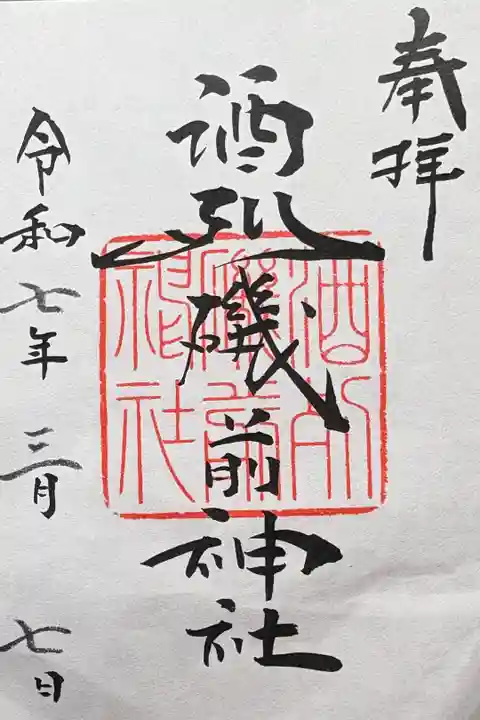 奉拝
酒列磯前神社
酒列
磯前
神社
令和七年三月七日